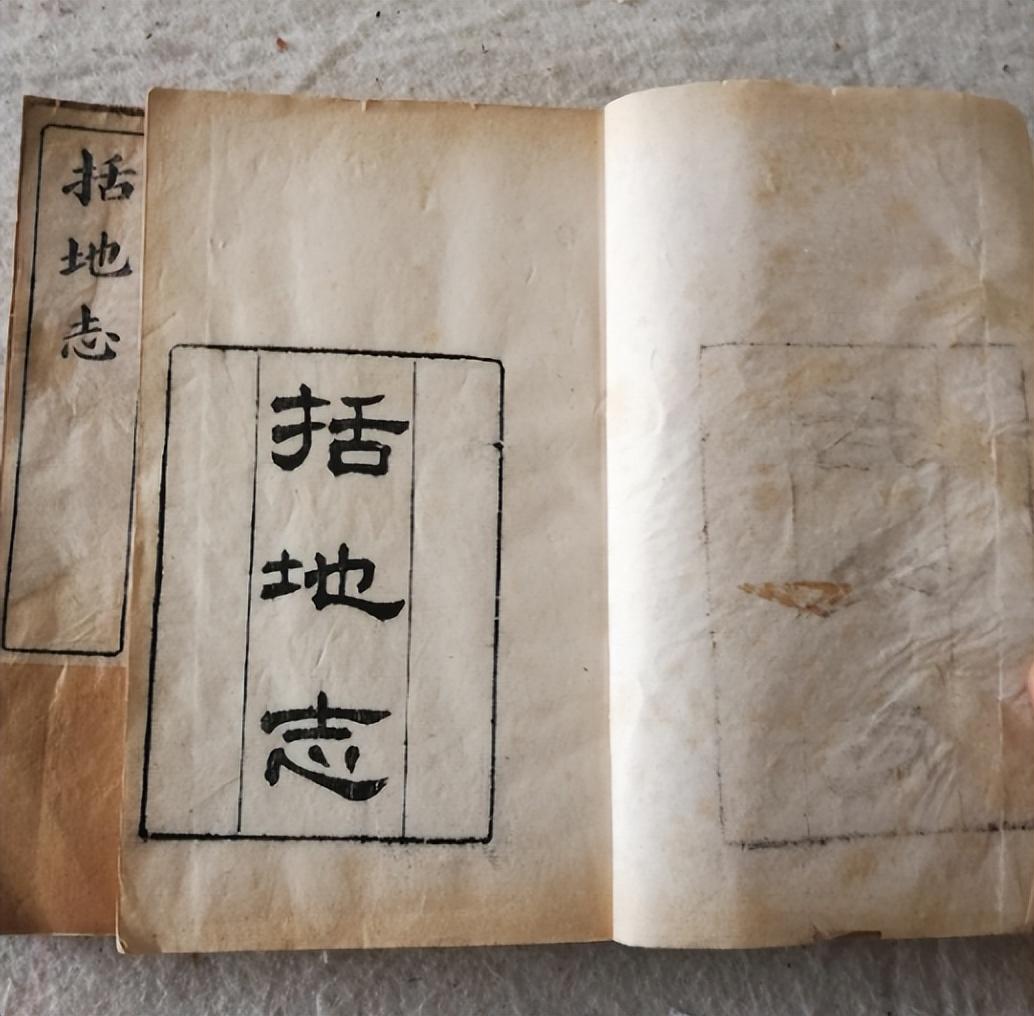 括地志
括地志